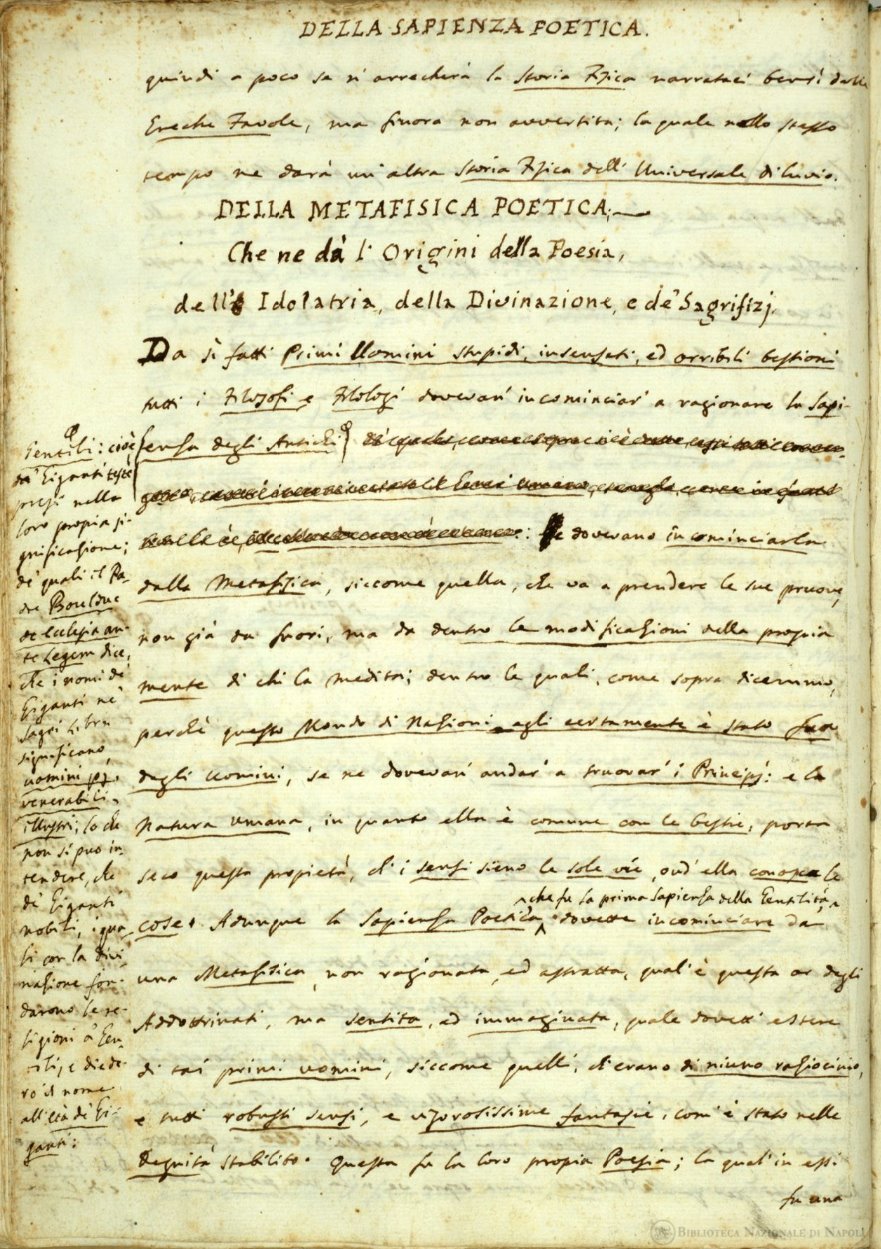 DELLA SAPIENZA POETICA.
quindi a poco se n'arrecherà la Storia Fisica narrataci bensì dalle
Greche Favole, ma finora non avvertita; la quale nello stesso
tempo ne darà un'altra Storia Fisica dell'Universale diluvio.
DELLA METAFISICA POETICA,
Che ne dà l'Origini della Poesia,
dell'Idolatria, della Divinazione, e de' Sagrifizj.
Da sì fatti Primi Uomini stupidi, insensati, ed orribili bestioni
tutti i Filosofi, e Filologi dovevan' incominciar' a ragionare la Sapi-
enza degli Antichi
: e dovevano incominciarla
dalla Metafisica, siccome quella, che va a prendere le sue pruove,
non già da fuori, ma da dentro le modificazioni della propia
mente di chi la medita; dentro le quali, come sopra dicemmo,
perchè questo Mondo di Nazioni egli certamente è stato fatto
degli uomini, se ne dovevan' andar' a truovar' i Principj: e la
Natura umana, in quanto ella è comune con le bestie, porta
seco questa propietà, ch'i sensi sieno le sole vie, ond'ella conosce le
cose. Adunque la Sapienza Poetica, che fu la prima Sapienza della Gentilità, dovette incominciare da
una Metafisica, non ragionata, ed astratta, qual'è questa or degli
Addottrinati, ma sentita, ed immaginata, quale dovett' essere
di tai primi uomini, siccome quelli, ch'erano di niuno raziocinio,
e tutti robusti sensi, e vigorosissime fantasie, com'è stato nelle
Degnità stabilito. Questa fu la loro propia Poesia; la qual'in essi
fu una
Gentili: cioè
da' Giganti testè
presi nella
loro propia si-
gnificazione;
de' quali il Pa-
dre Boulduc
de Ecclesia an-
te Legem dice,
che i nomi de'
Giganti ne'
Sagri Libri
significano,
uomini pj,
venerabili,
illustri; lo che
non si può in-
tendere, che
de' Giganti
nobili, i qua-
li con la divi-
nazione fon-
darono le re-
ligioni a' Gen-
tili, e diede-
ro il nome
all'età de' Gi-
ganti:
BIBLIOTECA NAZIONALE DI NAPOLI